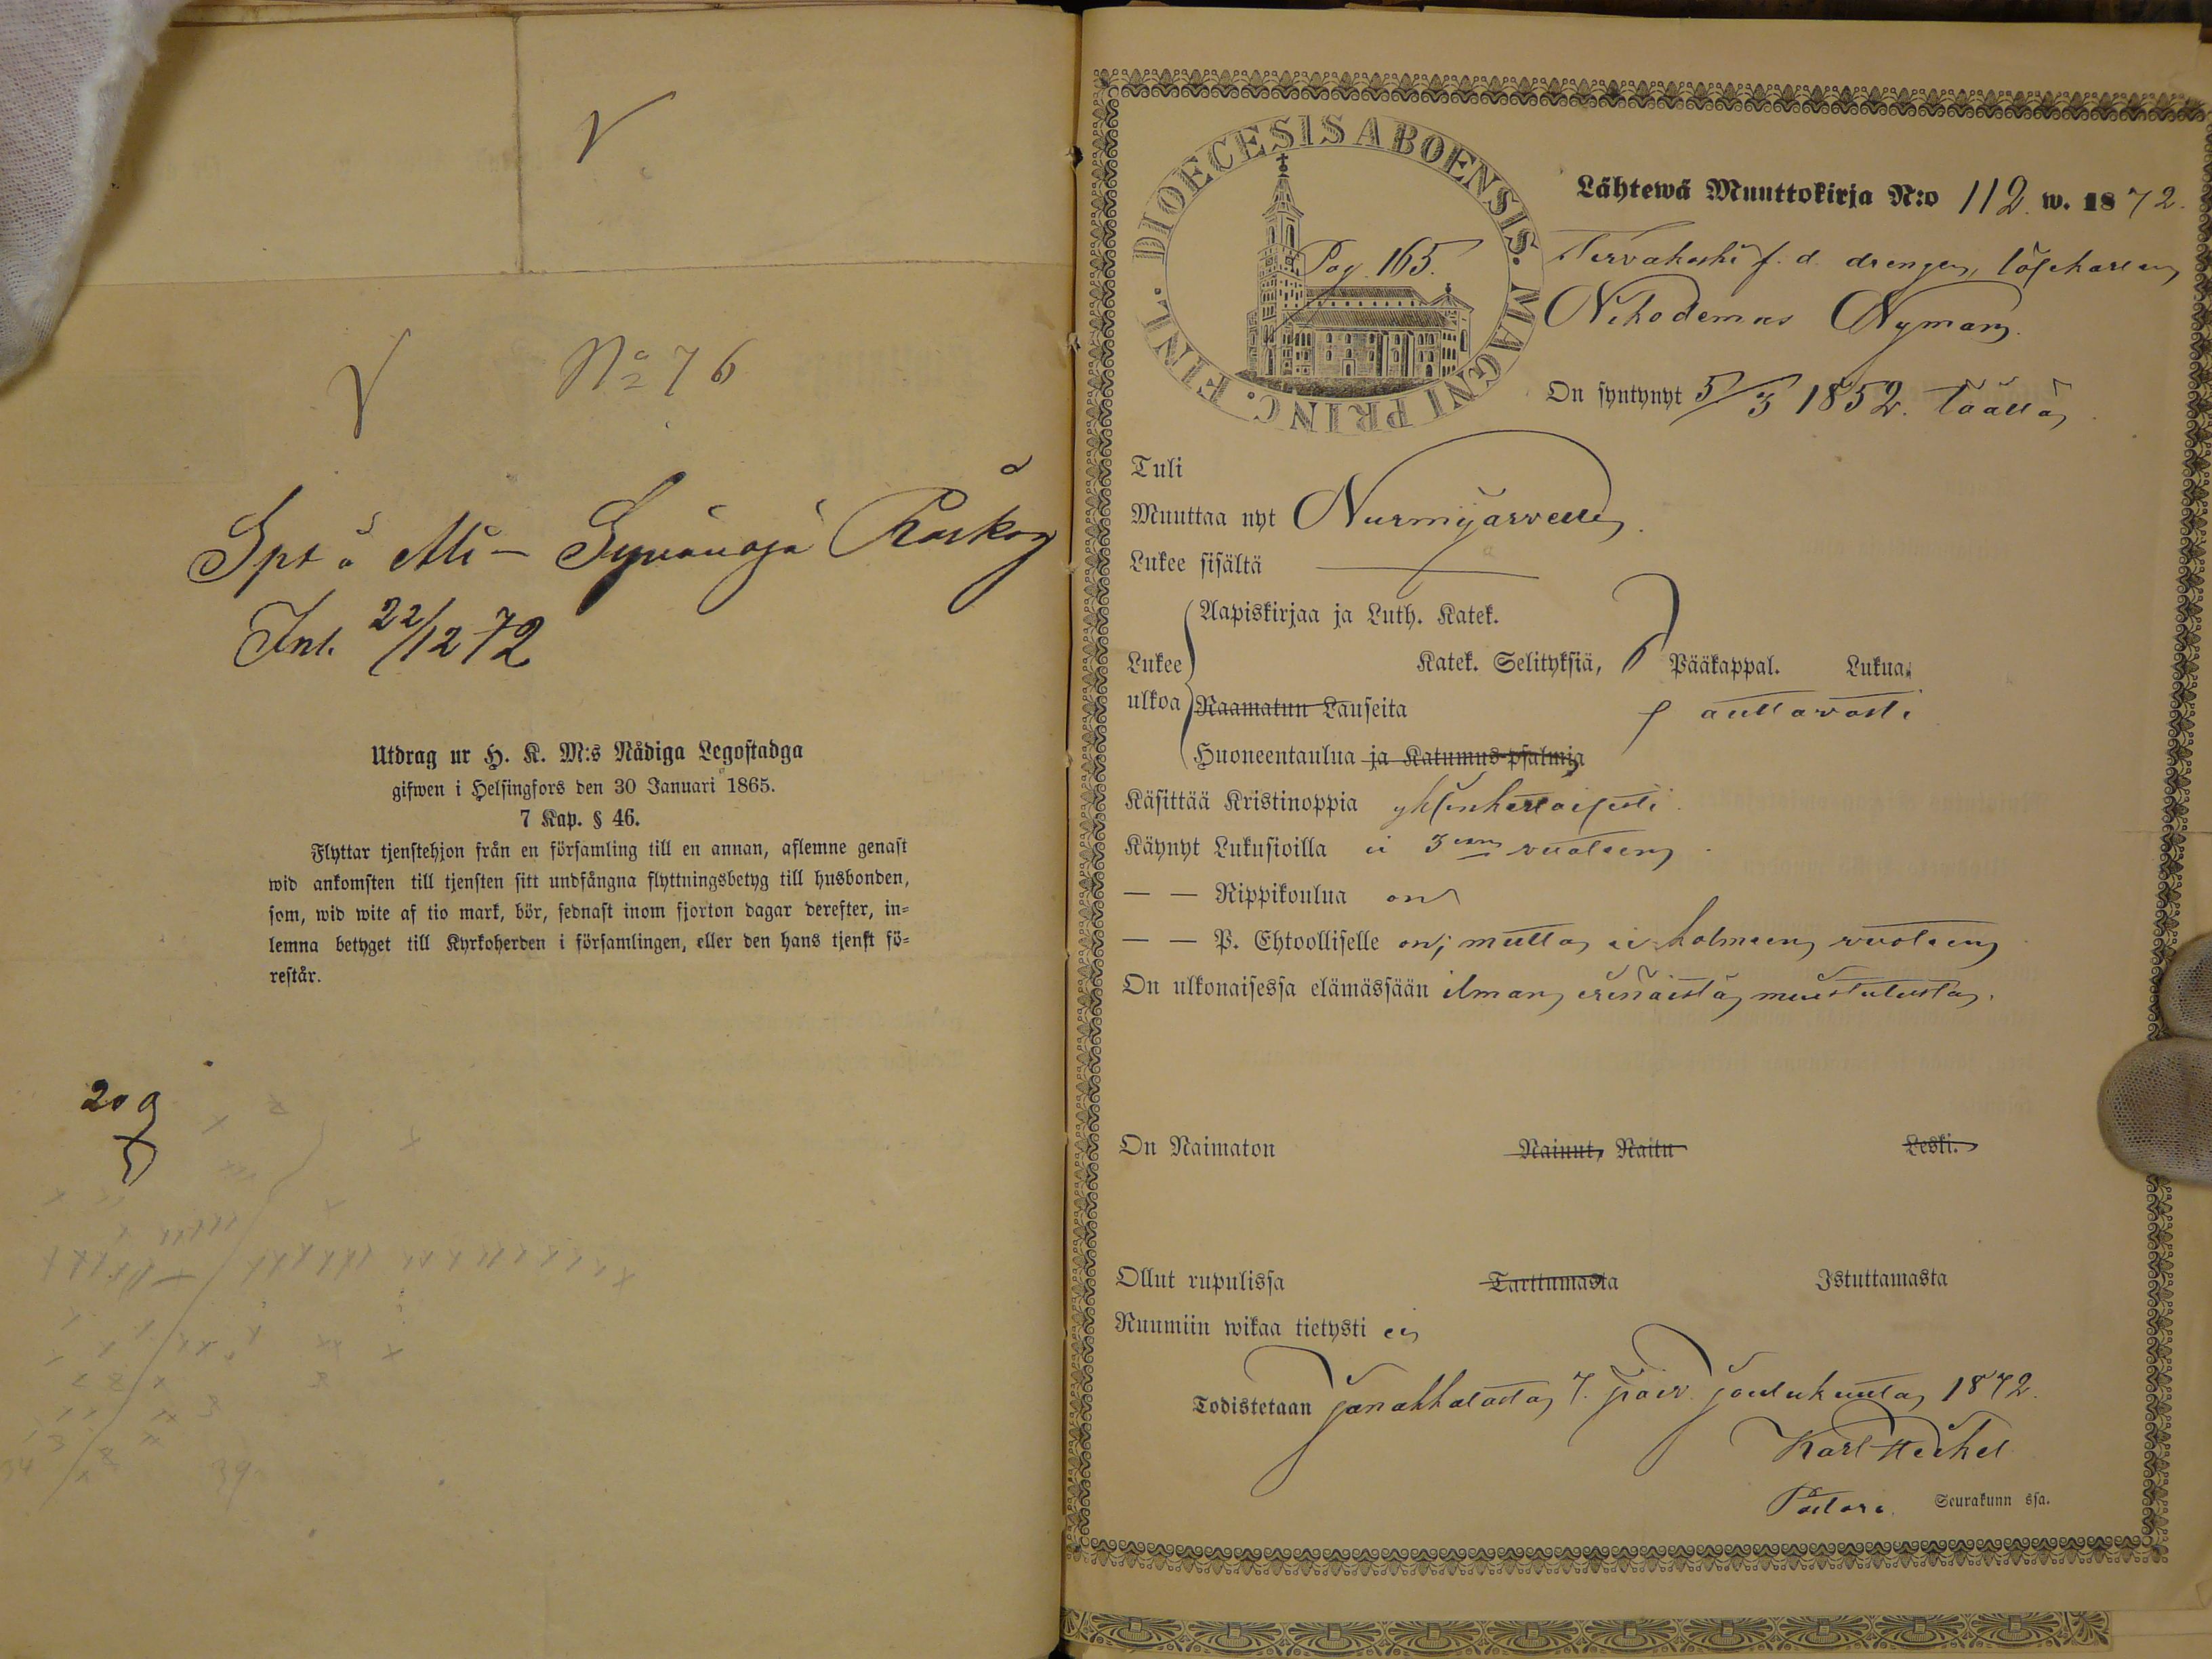 N:o 76
Inl. 22/12 72
Utdrag ur H. K. M:s Nådiga Legostadga
gifwen i Helsingfors den 30 Januari 1865.
7 Kap. § 46.
Flyttar tjenstehjon från en församling till en annan, aflemne genast
wid ankomsten till tjensten sitt undfångna flyttningsbetyg till husbonden,
som, wid wite af tio mark, bör, sednast inom fjorton dagar derefter, in=
lemna betyget till Kyrkoherden i församlingen, eller den hans tjenst fö=
restår.
DIOECESIS ABOENSIS. MAGNI PRINC. FINL.
Pag. 165.
Lähtewä Muuttokirja N:o 112. w. 1872.
Tervakoski f. d. drengen, löskarlen
Nikodemus Nyman.
On syntynyt 5/3 1852. täällä
Tuli
Muuttaa nyt Nurmijärvelle
Lukee sisältä
Aapiskirjaa ja Luth. Katek.
Lukee Katek. Selityksiä, Pääkappal. Lukua.
ulkoa Raamatun Lauseita auttavasti
Huoneentaulua ja Katumus-psalmia
Käsittää Kristinoppia yksinkertaisesti
Käynyt Lukusioilla ei 3een vuoteen
— — Rippikoulua on
— — P. Ehtoolliselle on; mutta ei kolmeen vuoteen
On ulkonaisessa elämässään ilman erinäistä muistutusta.
On Naimaton Nainut, Naitu Leski.
Ollut rupulissa Tarttumasta Istuttamasta
Ruumiin wikaa tietysti ei
Todistetaan Janakkalasta 7. päiv. Joulukuuta 1872.
Karl Heikel
Pastori Seurakunn ssa.